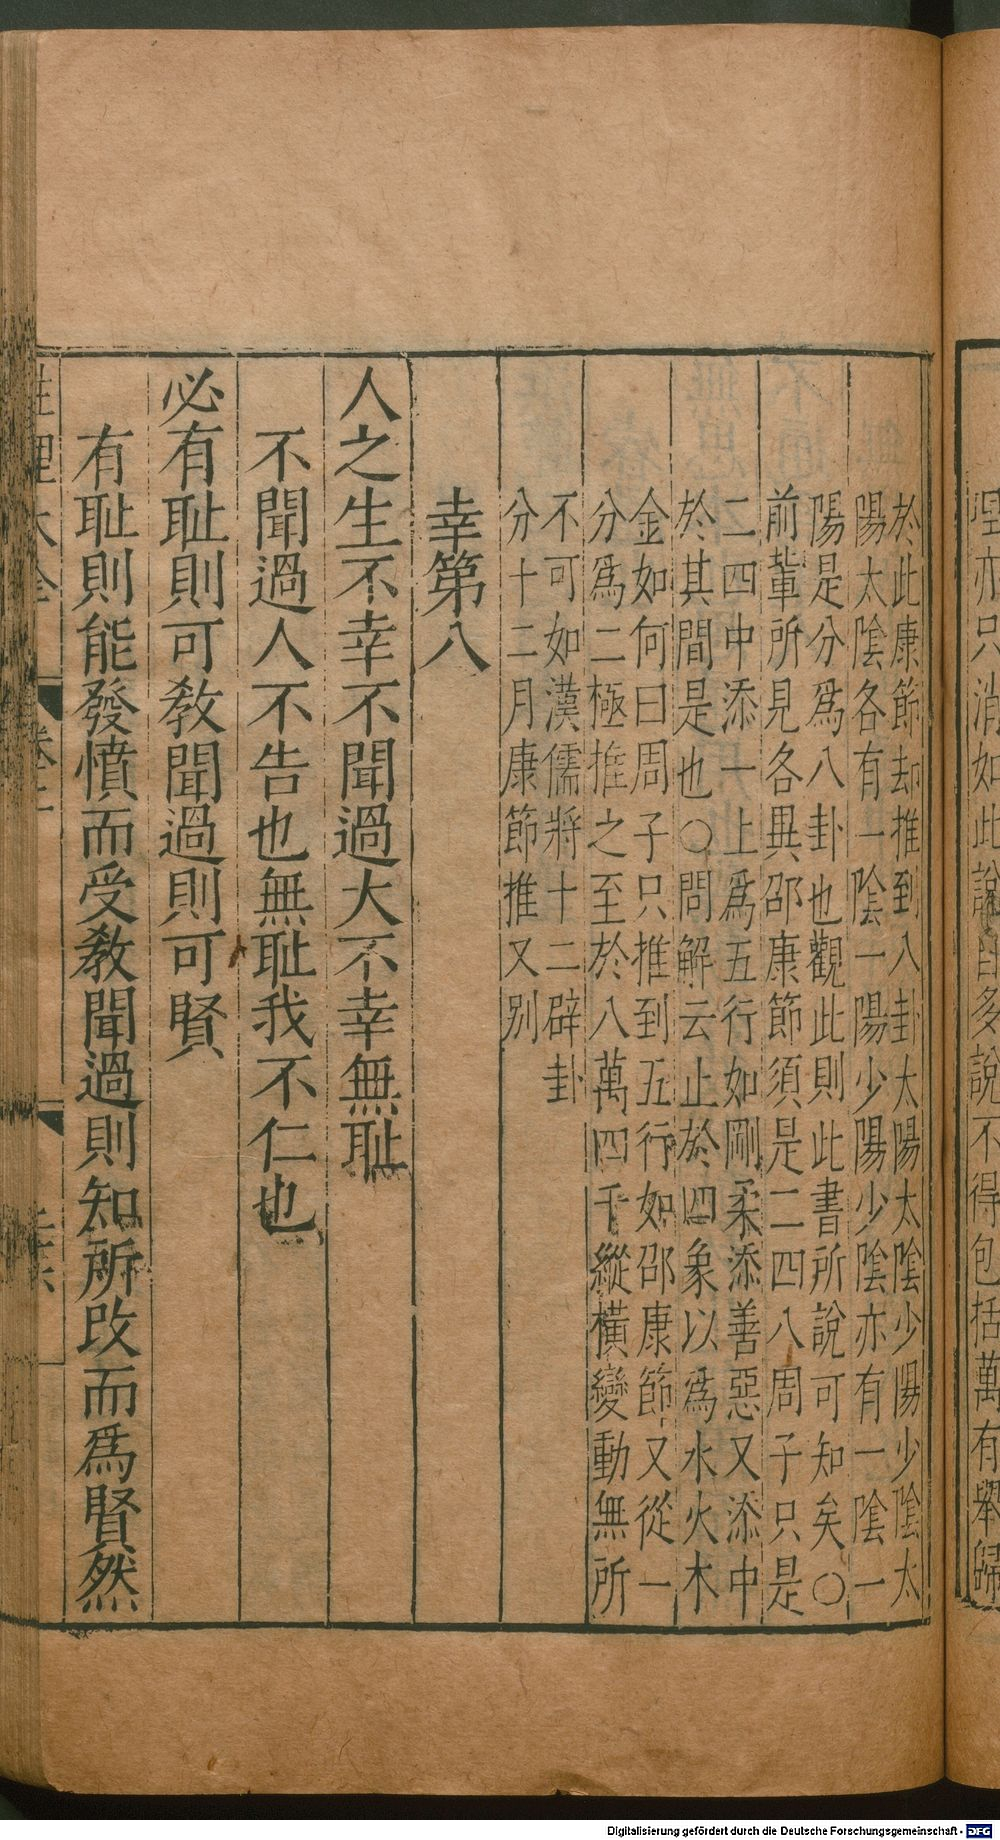 理亦只消如此説自多説不得包括萬有舉歸
於此康節却推到八卦太陽太陰少陽少陰太
陽太陰各有一陰一陽少陽少陰亦有一陰一
陽是分爲八卦也觀此則此書所說可知矣〇
前輩所見各異邵康節須是二四八周子只是
二四中添一上爲五行如剛柔添善惡又添中
於其間是也〇問解云止於四象以爲水火木
金如何曰周子只推到五行如邵康節又從一
分爲二極推之至於八萬四千縱橫變動無所
不可如漢儒將十二辟卦
分十二月康節推又別
幸第八
人之生不幸不聞過大不幸無耻
不聞過人不告也無耻我不仁也
必有耻則可敎聞過則可賢
有耻則能發憤而受敎聞過則知所改而爲賢然
性理大全 卷二
Digitalisierung gefördert durch die Deutsche Forschungsgemeinschaft - DFG